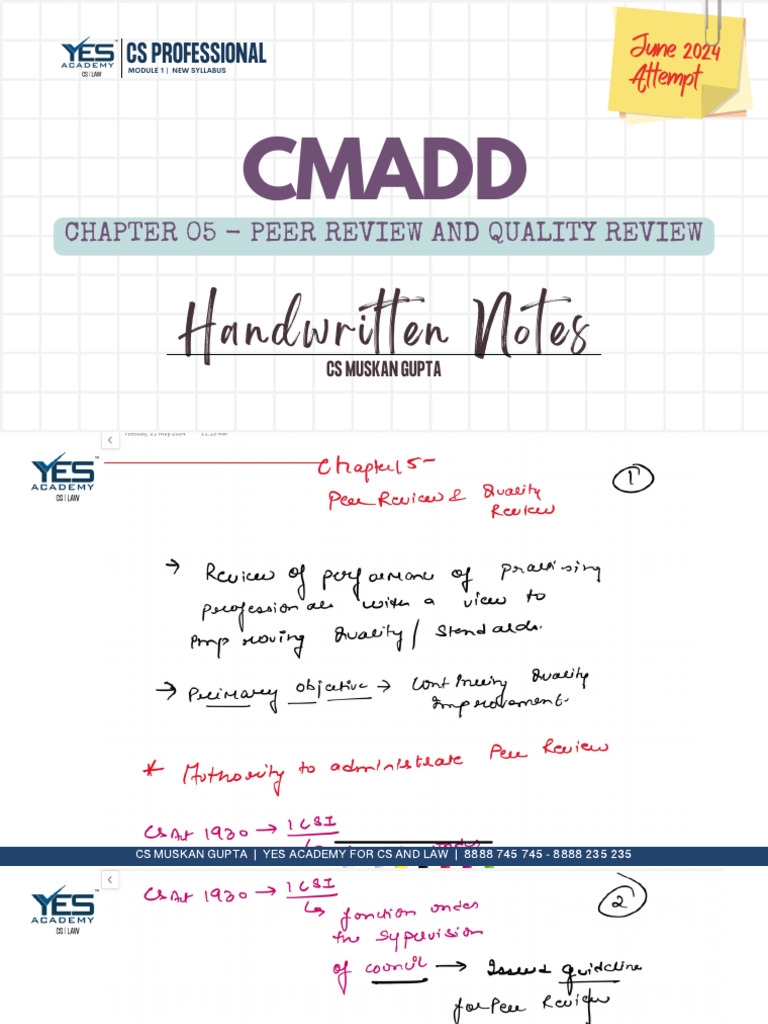 YES
ACADEMY
CS | LAW
CS PROFESSIONAL
MODULE 1 | NEW SYLLABUS
June 2024
Attempt
CMADD
CHAPTER 05 – PEER REVIEW AND QUALITY REVIEW
Handwritten Notes
CS MUSKAN GUPTA
Tuesday, 21 May 2024
YES
ACADEMY
CS | LAW
Chapter 5-
Peer Review & Quality
Review
1
→ Review of performance of practising
professionals with a view to
improving Quality / Standards.
→ Primary objective → continuing Quality
improvement.
* Authority to administrate Peer Review
CS Act 1980 → ICSI
CS MUSKAN GUPTA | YES ACADEMY FOR CS AND LAW | 8888 745 745 - 8888 235 235
YES
ACADEMY
CS | LAW
CS Act 1980 → ICSI
2
↳ function under
the supervision
of council → Issued guideline
for Peer Review